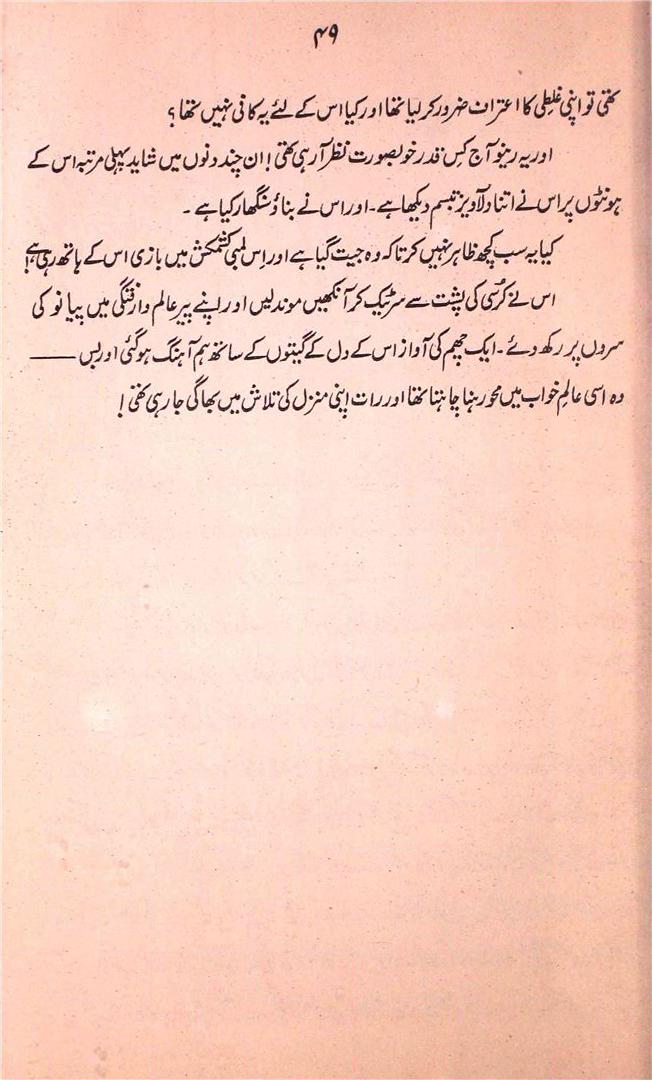 ۴۹
تھی تو اپنی غلطی کا اعتراف ضرور کر لیا تھا اور کیا اس کے لئے یہ کافی نہیں تھا ؟
اور یہ رینو آج کس قدر خوبصورت نظر آ رہی تھی ! ان چند دنوں میں شاید پہلی مرتبہ اس کے
ہونٹوں پر اس نے اتنا دلآویز تبسم دیکھا ہے ۔ اور اس نے بناؤ سنگھار کیا ہے ۔
کیا یہ سب کچھ ظاہر نہیں کرتا کہ وہ جیت گیا ہے اور اِس لمبی کشمکش میں بازی اس کے ہاتھ رہی ہے !
اس نے کرسی کی پشت سے سر ٹیک کر آنکھیں موند لیں اور اپنے پیر عالم وارفتگی میں پیانو کی
سروں پر رکھ دئے ۔ ایک چھم کی آواز اس کے دل کے گیتوں کے ساتھ ہم آہنگ ہو گئی اور بس ——
وہ اسی عالمِ خواب میں محو رہنا چاہتا تھا اور رات اپنی منزل کی تلاش میں بھاگی جا رہی تھی !